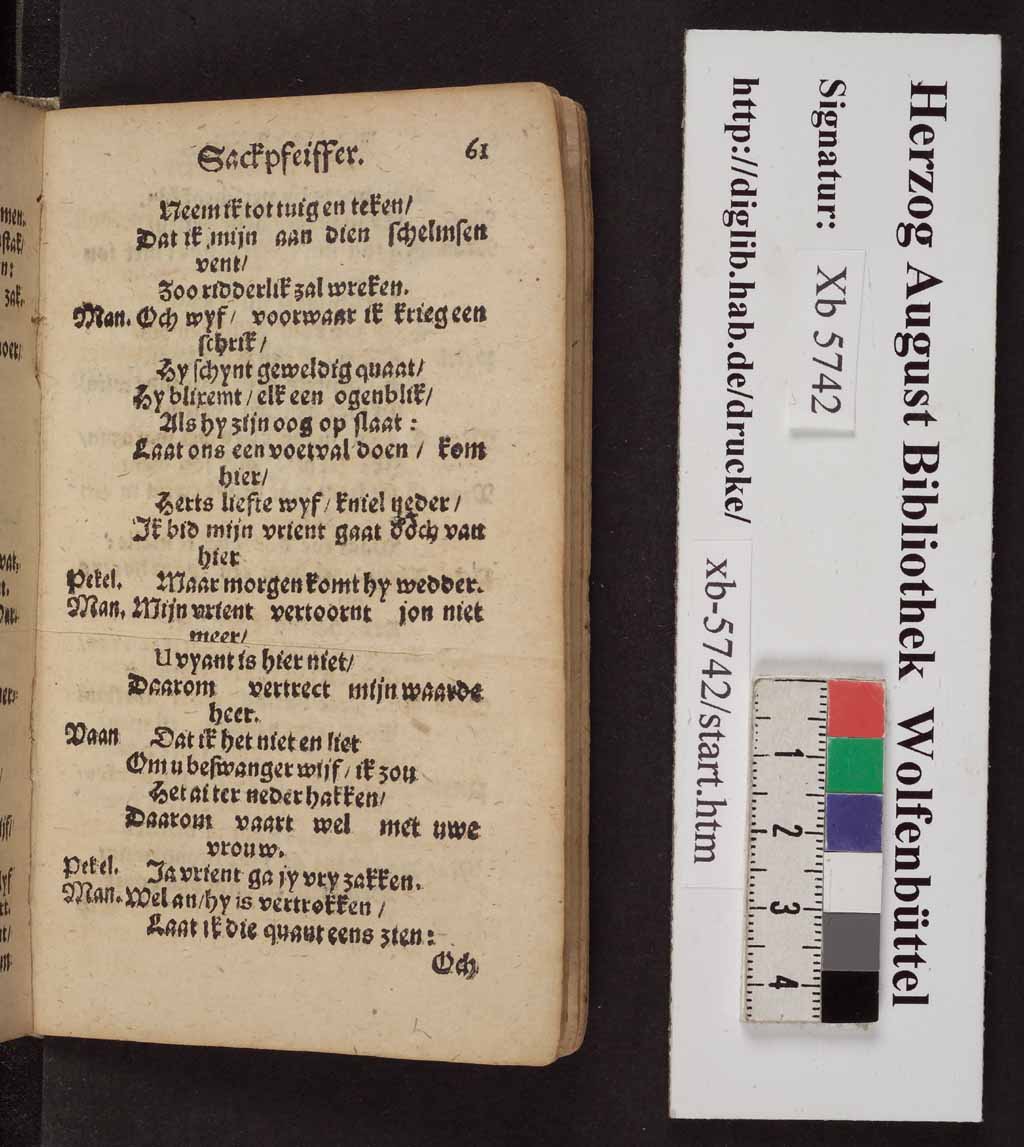 Sackpfeiffer. 61
Neem ik tot tuig en teken/
Dat ik mijn aan dien schelmsen
vent/
Zoo ridderlik zal wreken.
Man. Och wyf/ voorwaar ik krieg een
schrik/
Hy schynt geweldig quaat/
Hy blixemt/ elk een ogenblik/
Als hy zijn oog op slaat:
Laat ons een voetval doen/ kom
hier/
Herts liefte wyf/ kniel neder/
Ik bid mijn vrient gaat doch van
hier
Pekel. Maar morgen komt hy wedder.
Man. Mijn vrient vertoornt jon niet
meer/
U vyant is hier niet/
Daarom vertrect mijn waarde
heer.
Vaan Dat ik het niet en liet
Om u beswanger wijf/ ik zou
Het al ter neder hakken/
Daarom vaart wel met uwe
vrouw.
Pekel. Ja vrient ga jy vry zakken.
Man. Wel an/ hy is vertrokken/
Laat ik die quant eens zien:
Och
men.
stak/
n:
zak.
oer/
vat,
t.
ijf/
yf
tt.
nt/
m
Herzog August Bibliothek Wolfenbüttel
Signatur: Xb 5742
http://diglib.hab.de/drucke/ xb-5742/start.htm
1
2
3
4